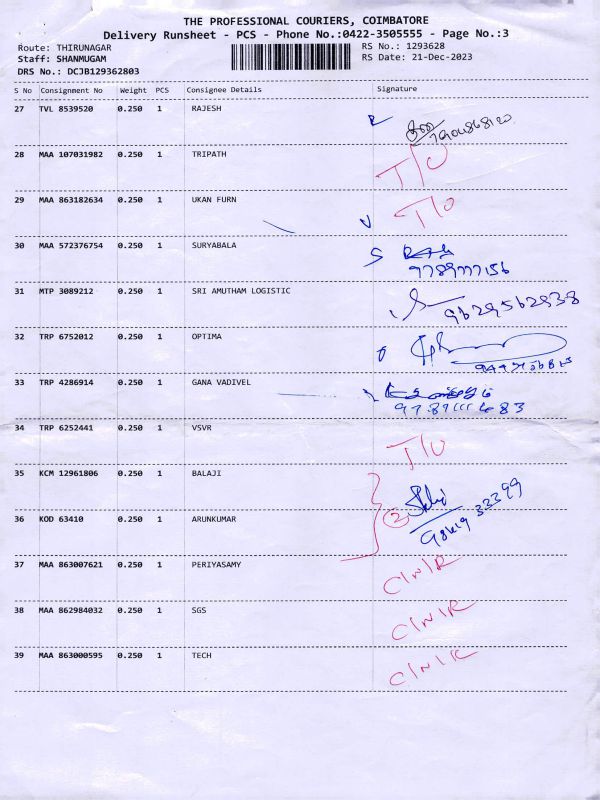 THE PROFESSIONAL COURIERS, COIMBATORE
Delivery Runsheet - PCS - Phone No.:0422-3505555 - Page No.:3
Route: THIRUNAGAR
Staff: SHANMUGAM
DRS No.: DCJB129362803
RS No.: 1293628
RS Date: 21-Dec-2023
S No Consignment No Weight PCS Consignee Details Signature
27 TVL 8539520 0.250 1 RAJESH
28 MAA 107031982 0.250 1 TRIPATH T/O
29 MAA 863182634 0.250 1 UKAN FURN T/O
30 MAA 572376754 0.250 1 SURYABALA
9789777156
31 MTP 3089212 0.250 1 SRI AMUTHAM LOGISTIC 9629562838
32 TRP 6752012 0.250 1 OPTIMA
33 TRP 4286914 0.250 1 GANA VADIVEL
34 TRP 6252441 0.250 1 VSVR T/O
35 KCM 12961806 0.250 1 BALAJI
36 KOD 63410 0.250 1 ARUNKUMAR 2
37 MAA 863007621 0.250 1 PERIYASAMY C/N/R
38 MAA 862984032 0.250 1 SGS C/N/R
39 MAA 863000595 0.250 1 TECH C/N/R